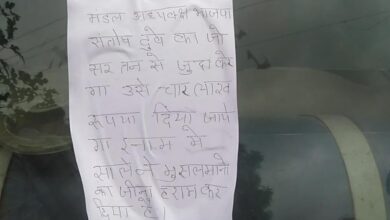 मंडल अध्यक्ष भाजपा
संतोष दुबे का जो
सर तन से जुदा करे
गा उसे चार लाख
रूपया दिया जाये
गा इनाम में
साले ने मुसलमानो
का जीना हराम कर
दिया है।